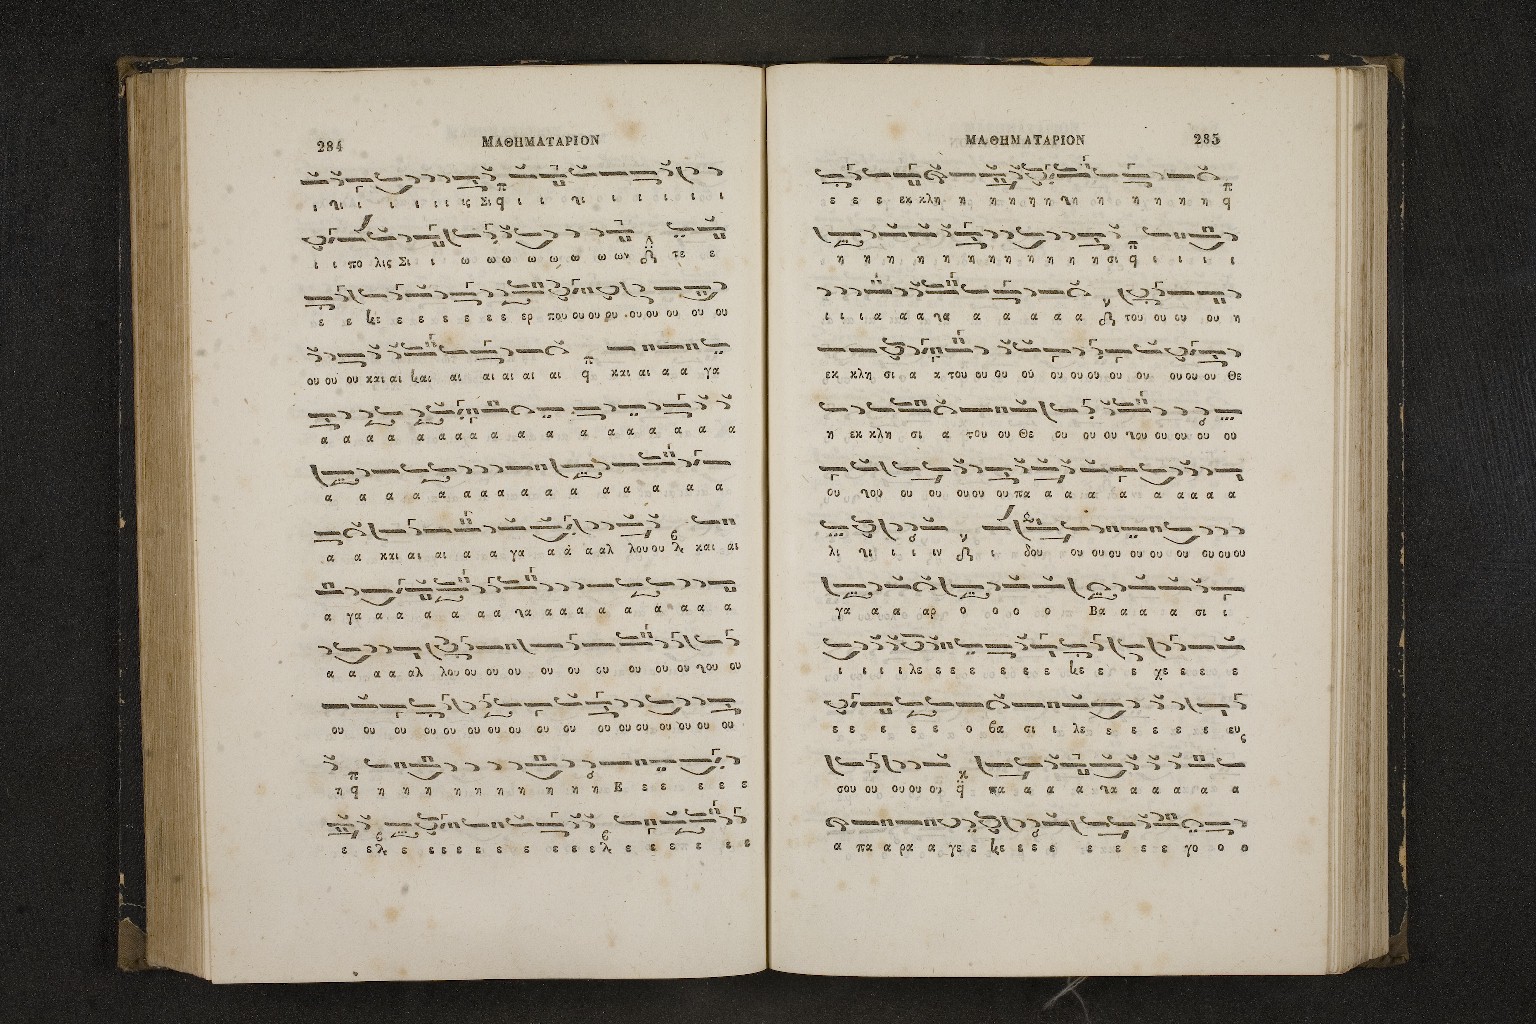 284
ΜΑΘΗΜΑΤΑΡΙΟΝ
ι ι ι ι ι ι ι ις Σι ι ι ι ι ι ι ι ι
ι ι πο λις Σι ι ω ω ω ω ω ω ω ων τε ε
ε ε ε ε ε ε ε ε ερ που ου ου ου ου ου ου ου
ου ου ου και αι αι αι αι αι αι και αι α α γα
α α α α α α α α α α α α α α α α α α α
α α α α α α α α α α α α α α α α
α α και αι αι α α γα α ά α αλ λου ου και αι
α γα α α α α α α α α α α α α α α α
α α α α αλ λου ου ου ου ου ου ου ου ου ου
ου ου ου ου ου ου ου ου ου ου ου ου ου ου ου ου ου
η η η η η η η η η η Ε ε ε ε ε ε
ε ε ε ε ε ε ε ε ε ε ε ε ε ε ε ε ε
ΜΑΘΗΜΑΤΑΡΙΟΝ
285
ε ε ε εκ κλη η η η η η η η η η η
η η η η η η η η η η η σι ι ι ι ι
ι ι ι α α α α α α α α του ου ου ου η
εκ κλη σι α α του ου ου ού ου ου ου ου ου ου ου ου Θε
η εκ κλη σι α του ου Θε ου ου ου ου ου ου ου
ου ου ου ου ου ου πα α α α α α α α α
λι ι ι ιν ι δου ου ου ου ου ου ου ου ου ου
γα α α αρ ο ο ο ο Βα α α α σι ι
ι ι ι ι λε ε ε ε ε ε ε ε ε χε ε ε ε
ε ε ε ε ε ε ο βα σι ι λε ε ε ε ε ε ευς
σου ου ου ου ου πα α α α α α α α α
α πα α ρα α γε ε ε ε ε ε ε ε ε γο ο ο